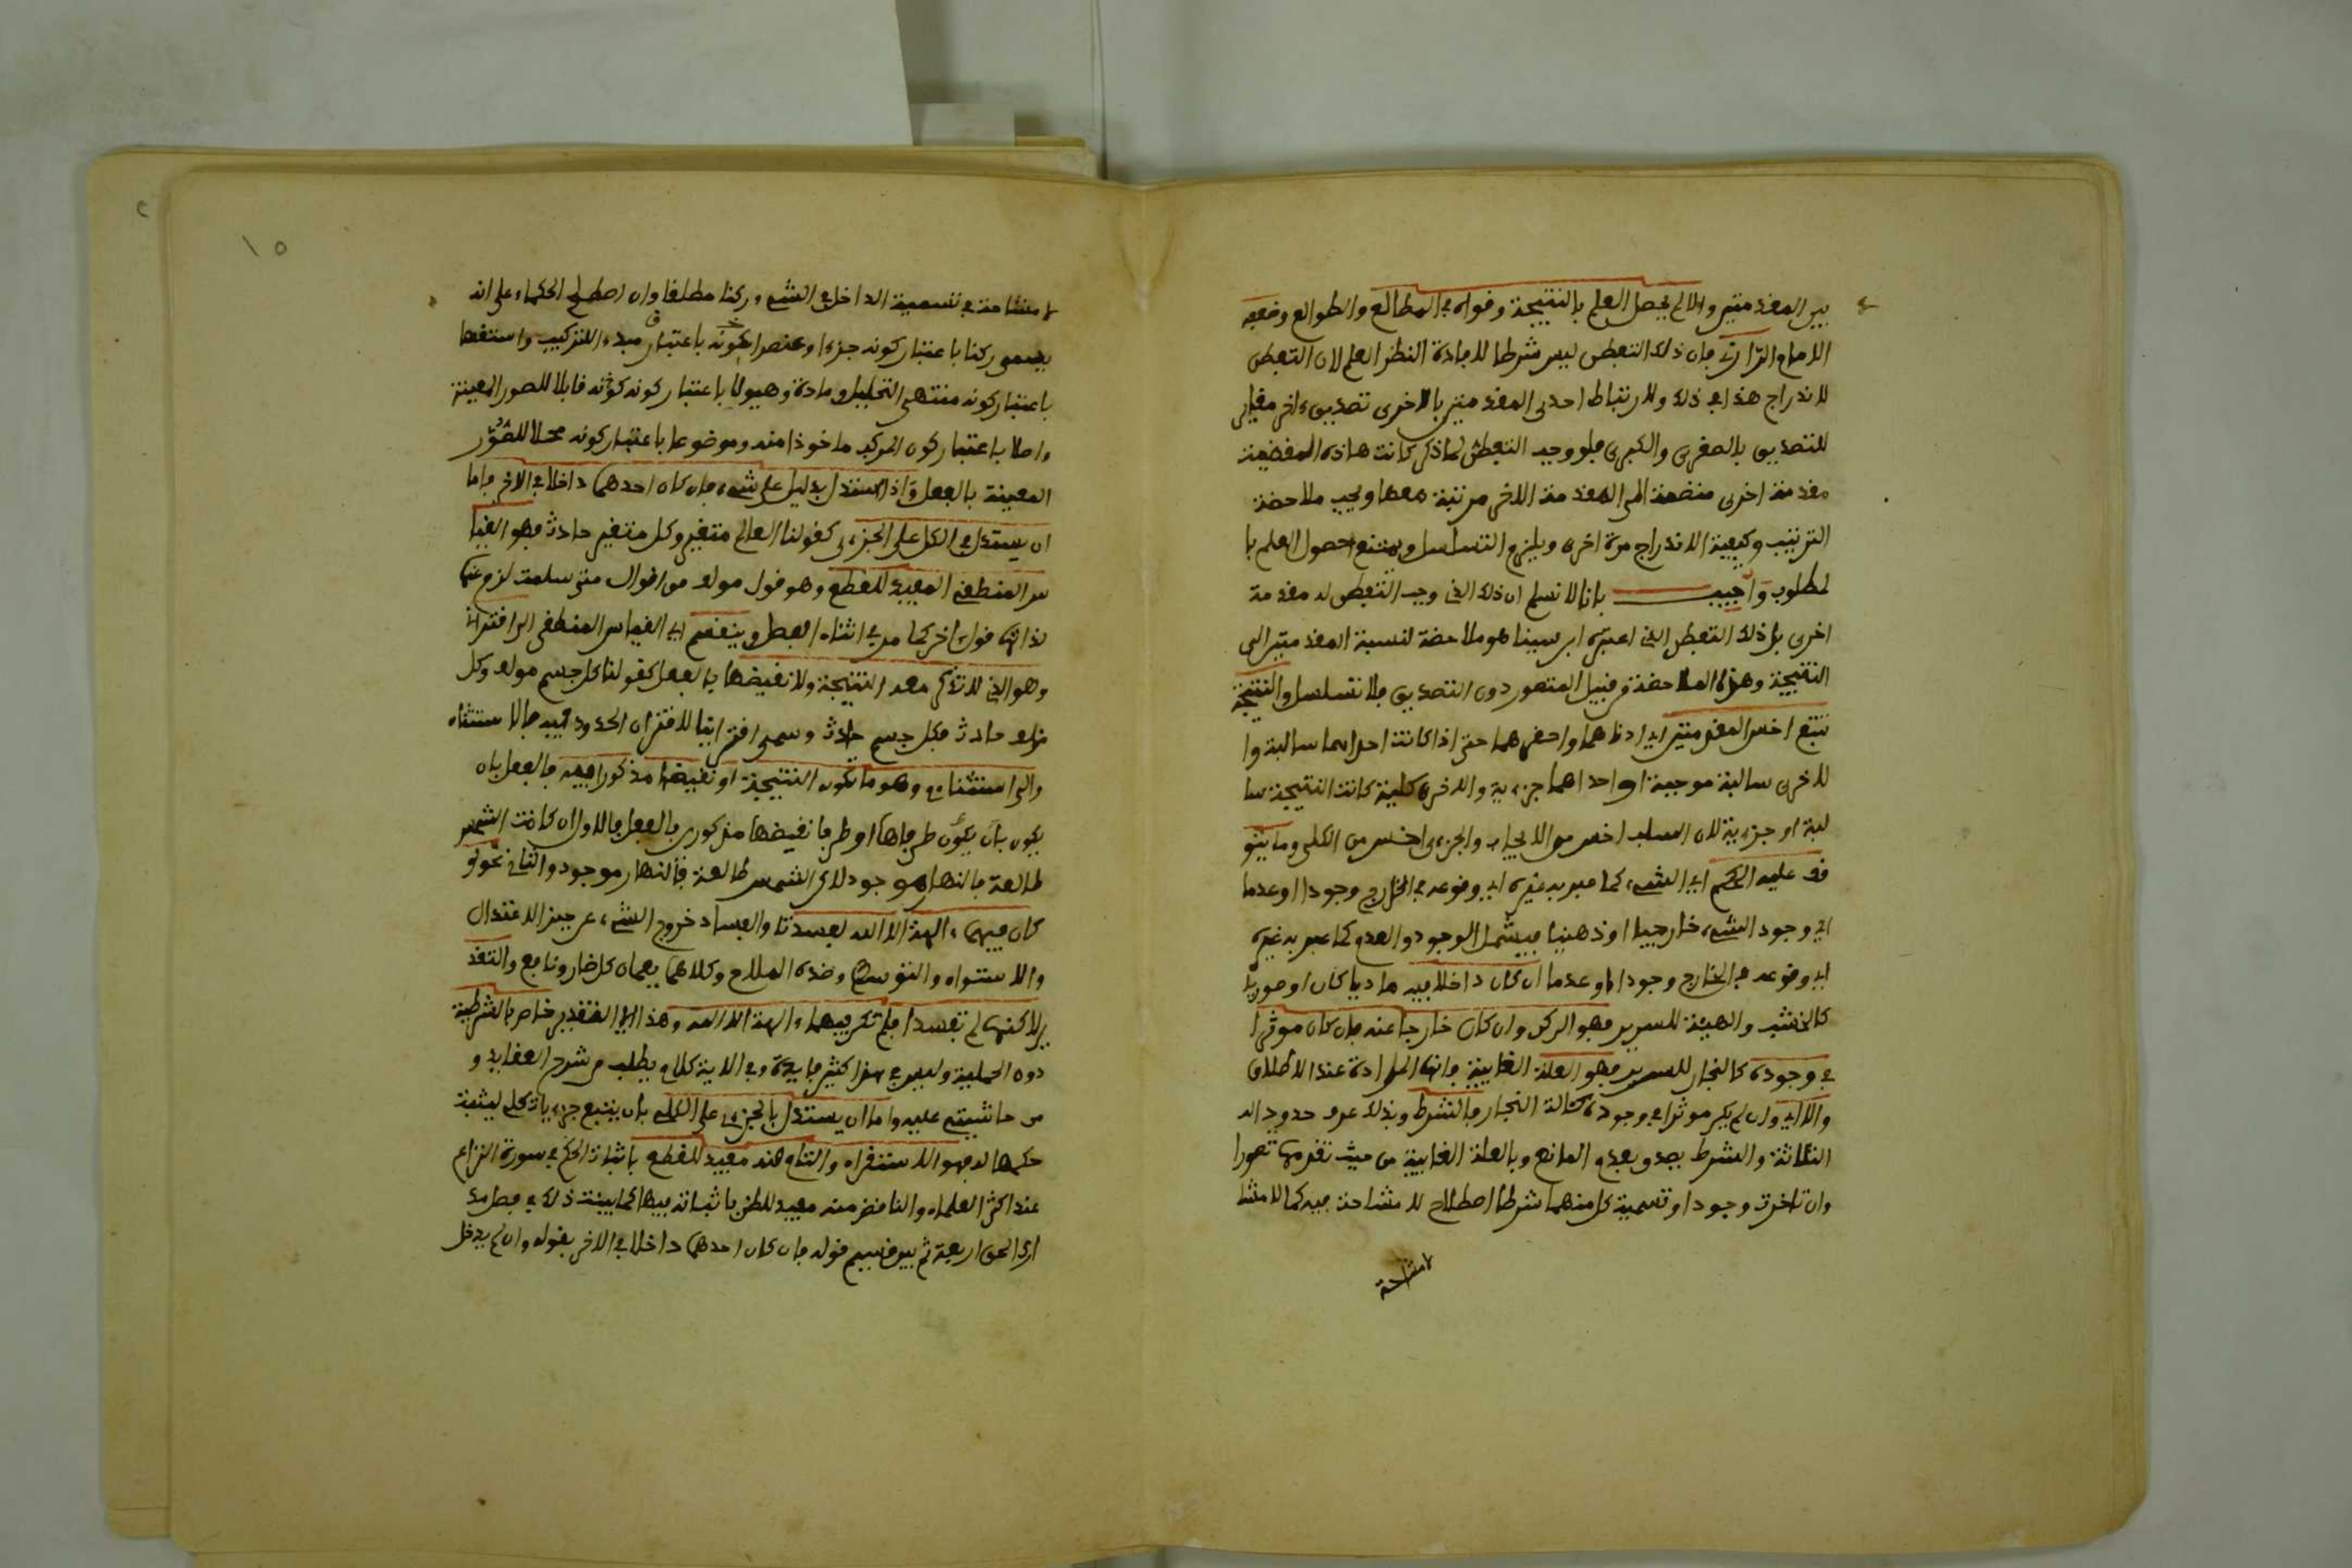 بين المقدمتين والا لم يحصل العلم بالنتيجة وقواه في المطالع والطوالع وضعفه
الامام الرازي بان ذلك التفطن ليس شرطا لافادة النظر العلم لان التفطن
لاندراج هذا في ذلك ولارتباط احدى المقدمتين بالاخرى تصديق ءاخر مغاير
للتصديق بالصغرى والكبرى فلو وجب التفطن لما ذكر كانت هاذه القضية
مقدمة اخرى منضمة الى المقدمة الاخرى مرتبة معها ويجب ملاحضة
الترتيب وكيفية الاندراج مرة اخرى ويلزم التسلسل ويمتنع حصول العلم با
لمطلوب واجيب بانا لا نسلم ان ذلك الذي وجب التفطن له مقدمة
اخرى بل ذلك التفطن الذي اعتبره ابن سينا هو ملاحضة لنسبة المقدمتين الى
النتيجة وهذه الملاحضة من قبيل التصور دون التصديق فلا تسلسل والنتيجة
تتبع اخس المقدمتين اي ادناهما واضعفهما حتى اذا كانت احداهما سالبة وا
لاخرى سالبة موجبة او احداهما جزءية والاخرى كلية كانت النتيجة سا
لبة او جزءية لان السلب اخس من الايجاب والجزءي اخس من الكلي وما يتو
قف عليه الحكم اي الشيء كما عبر به غيره اي وقوعه في الخارج وجودا او عدما
اي وجود الشيء خارجيا او ذهنيا فيشمل الوجود والعدم كما عبر به غيره
اي وقوعه في الخارج وجودا او عدما ان كان داخلا فيه ماديا كان او صوريا
كالخشب والهيئة للسرير فهو الركن وان كان خارجا عنه فان كان موثرا
في وجوده كالنجار للسرير فهو العلة الغايية فانها المرادة عند الاطلاق
والا اي وان لم يكن موثرا في وجوده كـالة النجار فالشرط وبذلك عرف حدود الـ
الثلاثة والشرط يصدق بعدم المانع وبالعلة الغايية من حيث تقدمها تصورا
وان تاخرت وجودا وتسمية كل منهما شرطا اصطلاح لا مشاحة فيه كما لا مشا
لا مشاحة
١٥
لا مشاحة في تسمية الداخل في الشيء ركنا مطلقا وان اصطلح الحكماء على انه
يسمى ركنا باعتبار كونه جزءا وعنصرا باعتبار كونه مبدء للتركيب واستقصا
باعتبار كونه منتهى التحليل ومادة وهيولا باعتبار كونه قابلا للصور المعينة
واصلا باعتبار كون المركب ماخوذا منه وموضوعا باعتبار كونه محلا للصور
المعينة بالفعل واذا استدل بدليل على شيء فان كان احدهما داخلا في الاخر فاما
ان يستدل بالكل على الجزءي كقولنا العالم متغير وكل متغير حادث فهو القيا
س المنطقي المفيد للقطع وهو قول مولف من اقوال متى سلمت لزم عنها
لذاتها قول اخر كما مر في اثناء الفصل وينقسم اي القياس المنطقي الى اقتراني
وهو الذي لا تذكر معه النتيجة ولا نقيضها بالفعل كقولنا كل جسم مولف وكل
مولف حادث فكل جسم حادث وسمي اقترانيا لاقتران الحدود فيه بلا استثناء
والى استثناءي وهو ما تكون النتيجة او نقيضها مذكورا فيه بالفعل بان
يكون بان يكون طرفاها او طرفا نقيضها مذكورين بالفعل فالاول ان كانت الشمس
طالعة فالنهار موجود لاكن الشمس طالعة فالنهار موجود والثاني نحو لو
كان فيهما ءالهة الا الله لفسدتا والفساد خروج الشيء عن حيز الاعتدال
والاستواء والتوسط وضده الصلاح وكلاهما يعمان كل ضار ونافع والتقد
ير لاكنهما لم تفسدا فلم تكن فيهما ءالهة الا الله وهذا اي التقدير خاص بالشرطية
دون الحملية وليس في هذا كثير فايدة وفي الاية كلام يطلب من شرح العقايد و
من حاشيتي عليه واما ان يستدل بالجزءي على الكلي بان يتتبع جزءيات كلي ليثبت
حكمها له فهو الاستقراء والتام منه مفيد للقطع باثبات الحكم في صورة النزاع
عند اكثر العلماء والناقص منه مفيد للظن باثباته فيها كما بينت ذلك في
ثم بين قسيم قوله فان كان احدهما داخلا في الاخر بقوله وان لم يدخل